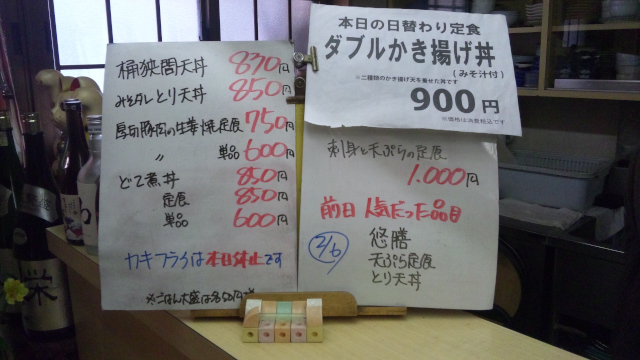 桶狭間天丼 830円
みそダレとり天丼 850円
厚切豚肉の生姜焼定食 750円
〃 単品 600円
どて煮丼 850円
定食 850円
単品 600円
カキフライは本日休止です
※ごはん大盛は
本日の日替わり定食
ダブルかき揚げ丼
(みそ汁付)
※二種類のかき揚げ天を乗せた丼です
900円
※価格は消費税込です
刺身と天ぷらの定食
1.000円
前日 人気だった品目
2/6
悠膳
天ぷら定食
とり天丼
栄